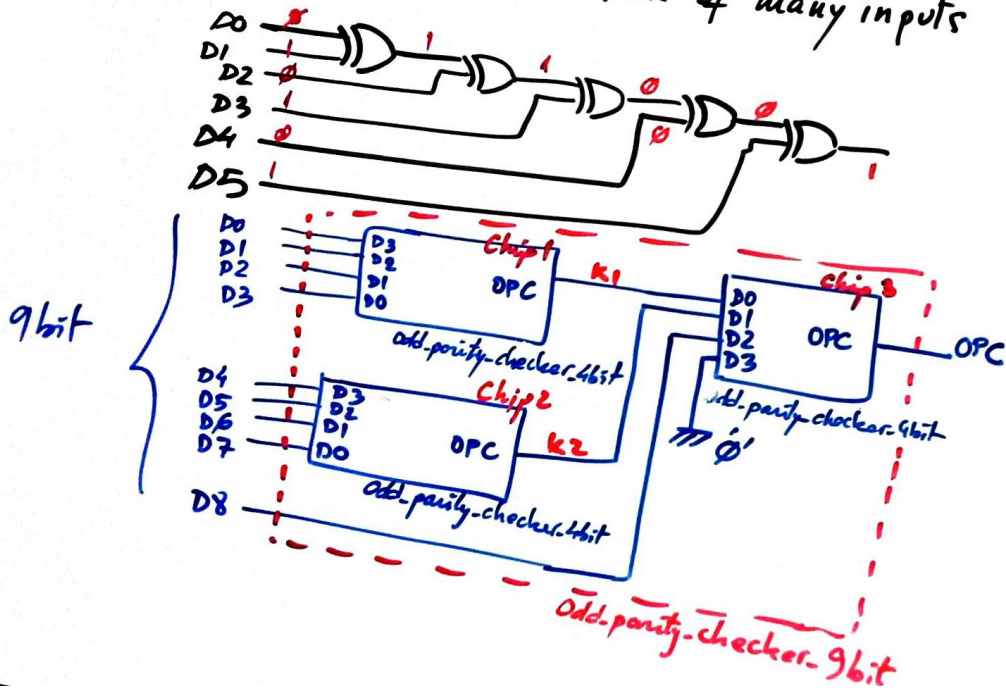 4 many inputs
D0 0
D1 1 1
D2 0 1
D3 1 0 0
D4 0 0
D5 1 1
9bit
D0
D1
D2
D3
D3
D2
D1
D0
OPC
Chip1
K1
odd_parity_checker_4bit
D4
D5
D6
D7
D3
D2
D1
D0
OPC
Chip2
K2
odd_parity_checker_4bit
D8
D0
D1
D2
D3
OPC
Chip 3
OPC
odd_parity_checker_4bit
'0'
odd_parity_checker_9bit